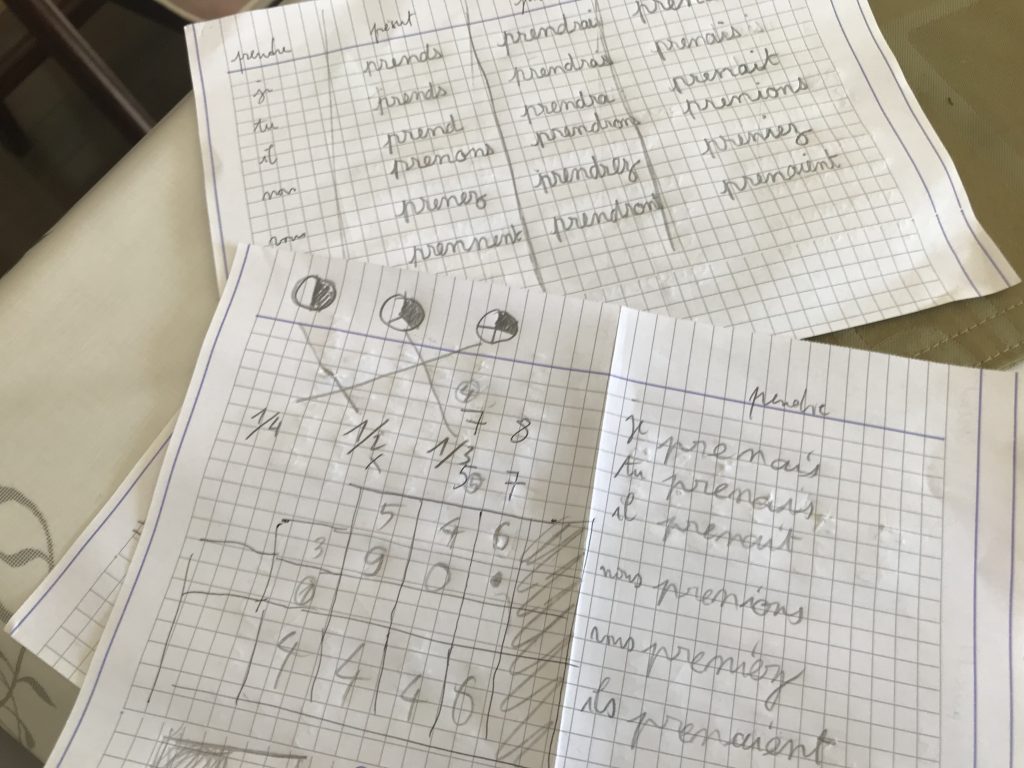 prendre
je prends prendrai
tu prends prendras prenais
il prend prendra prenait
nous prenons prendrons prenions
vous prenez prendrez preniez
prennent prendront prenaient
1/4 1/2 1/3
7 8
x 5 7
5 4 6
3 9 0 •
4 4 4 6
prendre
je prenais
tu prenais
il prenait
nous prenions
vous preniez
ils prenaient